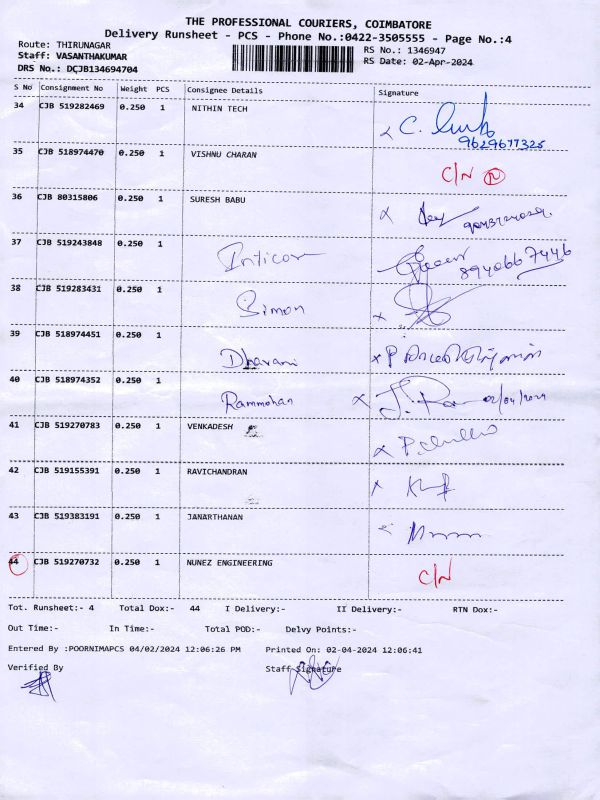 THE PROFESSIONAL COURIERS, COIMBATORE
Delivery Runsheet - PCS - Phone No.:0422-3505555 - Page No.:4
Route: THIRUNAGAR RS No.: 1346947
Staff: VASANTHAKUMAR RS Date: 02-Apr-2024
DRS No.: DCJB134694704
S No Consignment No Weight PCS Consignee Details Signature
34 CJB 519282469 0.250 1 NITHIN TECH
9629677325
35 CJB 518974470 0.250 1 VISHNU CHARAN C/N N
36 CJB 80315806 0.250 1 SURESH BABU
37 CJB 519243848 0.250 1
8940667446
38 CJB 519283431 0.250 1 Simon
39 CJB 518974451 0.250 1 Dharani
40 CJB 518974352 0.250 1 Rammohan 02/04/2024
41 CJB 519270783 0.250 1 VENKADESH
42 CJB 519155391 0.250 1 RAVICHANDRAN
43 CJB 519383191 0.250 1 JANARTHANAN
44 CJB 519270732 0.250 1 NUNEZ ENGINEERING C/N
Tot. Runsheet:- 4 Total Dox:- 44 I Delivery:- II Delivery:- RTN Dox:-
Out Time:- In Time:- Total POD:- Delvy Points:-
Entered By :POORNIMAPCS 04/02/2024 12:06:26 PM Printed On: 02-04-2024 12:06:41
Verified By Staff Signature